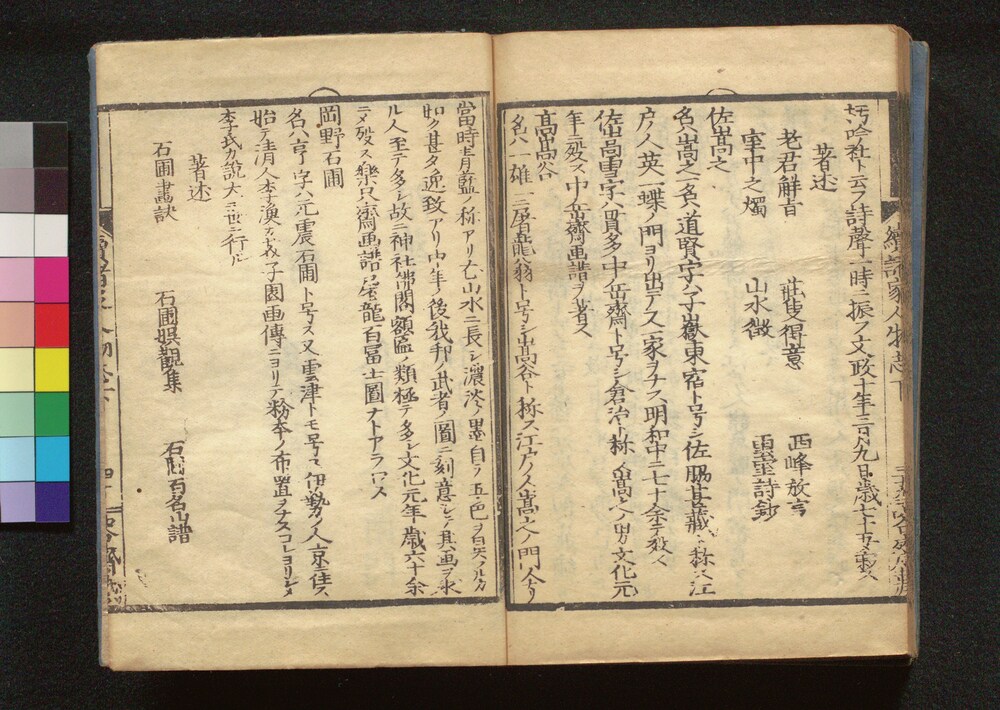 汚吟社ト云フ詩聲一時ニ振フ文政十年三月九日歳七十五ニテ殁ス
著述
老君解音　荘叟得意　西峰放言
室中之燭　山水徴　雲室詩鈔
佐嵩之
名ハ嵩之一名ハ道賢字ハ子嶽東宿ト号シ佐脇甚藏ト称ス江
戸ノ人英一蝶ノ門ヨリ出テス一家ヲナス明和中ニ七十余テ殁ス
佐嵩雪字ハ貫多中岳齋ト号シ倉治ト称ス嵩之ノ男文化元
年ニ殁ス中岳齋画譜ヲ著ス
高嵩谷
名ハ一雄一ニ屠龍翁ト号シ嵩谷ト称ス江戸ノ人嵩之ノ門人ナリ
當時青藍ノ称アリ尤山水ニ長シ濃淡ノ墨自ラ五色ヲ具ヘルカ
如ク甚タ逸致アリ中年ノ後我邦ノ武者ノ圖ニ刻意シテ其画ヲ求
ル人至テ多シ故ニ神社佛閣額面ノ類極テ多シ文化元年歳六十余
ニメ殁ス樂只齋画譜屠龍百富士圖ナトアラハス
岡野石圃
名ハ亨字ハ元震石圃ト号ス又雲津トモ号ス伊勢ノ人京ニ住ス
始テ清人李漁カ芥子園画傳ニヨリテ粉本ノ布置ヲナスコレヨリシメ
李氏カ説大ニ世ニ行ル
著述
石圃畫訣　石圃娯觀集　石圃百名山譜